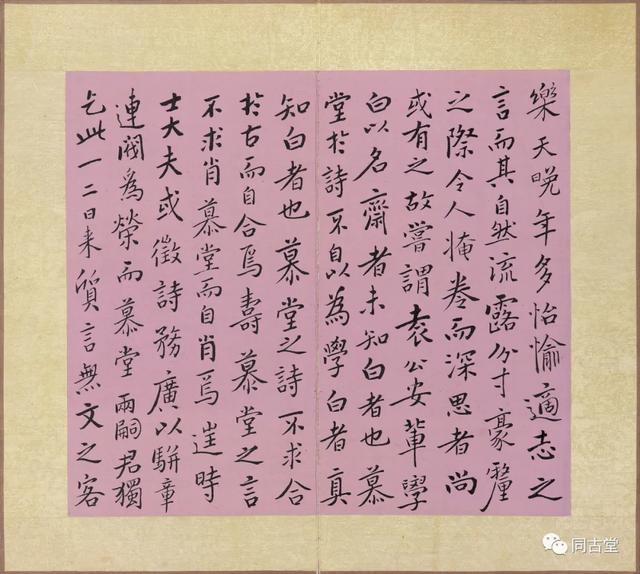 樂天晚年多怡愉適志之
言而其自然流露分寸豪釐
之際令人掩卷而深思者尚
或有之故嘗謂袁公安輩學
白以名齋者未知白者也慕
堂於詩不自以為學白者真
知白者也慕堂之詩不求合
於古而自合焉壽慕堂之言
不求肖慕堂而自肖焉近時
士大夫或徵詩務廣以駢章
連閥為榮而慕堂兩嗣君獨
乞此一二日來質言無文之客
同古堂